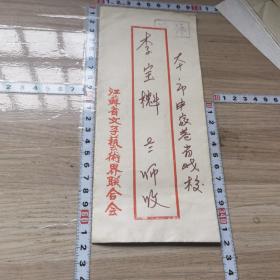 本市申家巷省戏校
李宝櫆 老师收
江苏省文学艺术界联合会